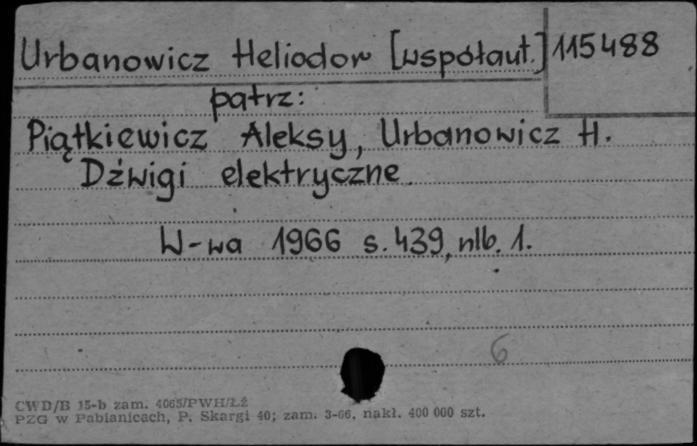 Urbanowicz Heliodor [współaut.] 115488
patrz:
Piątkiewicz Aleksy, Urbanowicz H.
Dźwigi elektryczne
W-wa 1966 s. 439, nlb. 1.
6
CWD/B 15-b zam. 4065/PWH/ŁŻ
PZG w Pabianicach, P. Skargi 40; zam. 3-66, nakł. 400 000 szt.